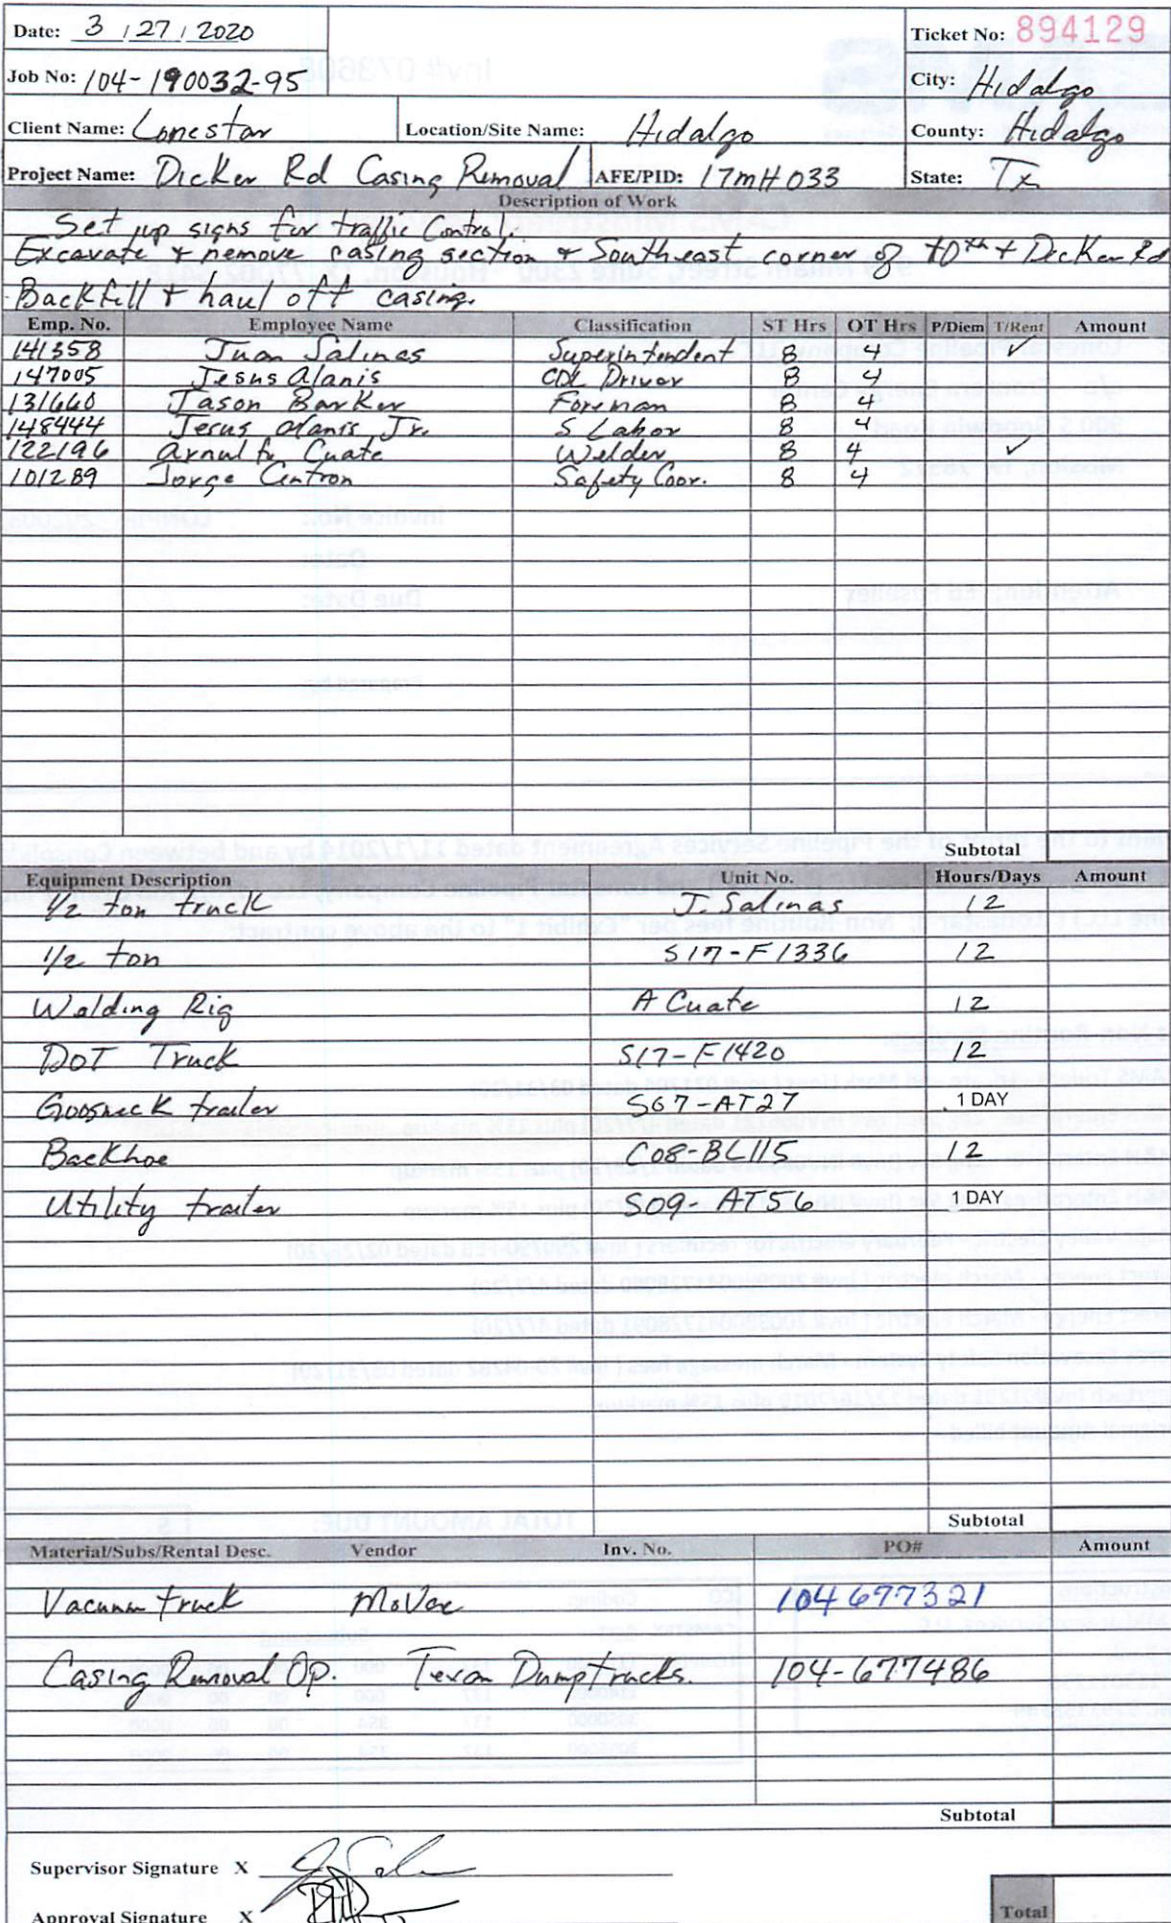 Date: 3 / 27 / 2020
Ticket No: 894129
Job No: 104-190032-95
City: Hidalgo
Client Name: Lonestar
Location/Site Name: Hidalgo
County: Hidalgo
Project Name: Dicker Rd Casing Removal
AFE/PID: 17MH033
State: Tx
Description of Work
Set up signs for traffic Control.
Excavate & remove casing section & Southeast corner of 10th & Dicker Rd
Backfill & haul off casing.
Emp. No. Employee Name Classification ST Hrs OT Hrs P/Diem T/Rent Amount
141358 Juan Salinas Superintendent 8 4 ✓
147005 Jesus Alanis CDL Driver 8 4
131660 Jason Barker Foreman 8 4
148444 Jesus Alanis Jr. S Labor 8 4
122196 Arnulfo Cuate Welder 8 4 ✓
101289 Jorge Centron Safety Coor. 8 4
Subtotal
Equipment Description Unit No. Hours/Days Amount
1/2 ton truck J Salinas 12
1/2 ton S17-F1336 12
Welding Rig A Cuate 12
DOT Truck S17-F1420 12
Goosneck trailer S67-AT27 1 DAY
Backhoe C08-BL115 12
Utility trailer S09-AT56 1 DAY
Subtotal
Material/Subs/Rental Desc. Vendor Inv. No. PO# Amount
Vacuum truck MoVac 104677321
Casing Removal Op. Texan Dumptrucks. 104-677486
Subtotal
Supervisor Signature X
Approval Signature X
Total